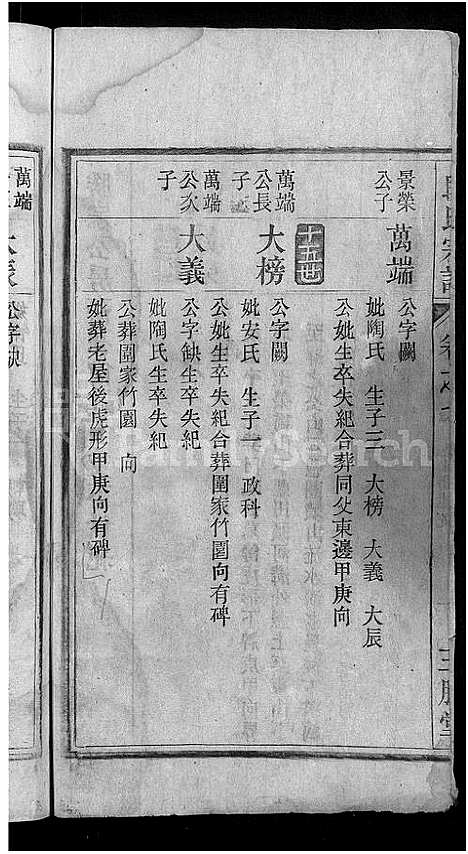 景榮
公子
萬端
公字闕
妣陶氏 生子三 大榜 大義 大辰
公妣生卒失紀合葬同父東邊甲庚向
十五世
萬端
公長
子
大榜
公字闕
妣安氏 生子一 政科
公妣生卒失紀合葬圍家竹園向有碑
萬端
公次
子
大義
公字缺生卒失紀
妣陶氏生卒失紀
公葬圍家竹園 向
妣葬老屋後虎形甲庚向有碑
萬端
大義
公字缺